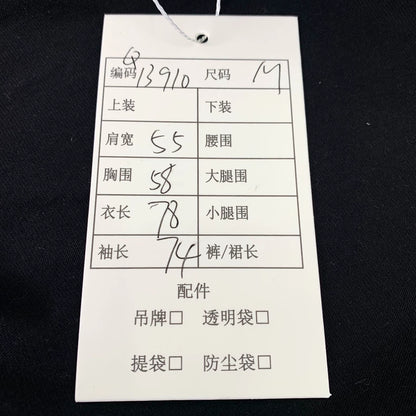 编码 Q13910 尺码 M
上装 下装
肩宽 55 腰围
胸围 58 大腿围
衣长 78 小腿围
袖长 74 裤/裙长
配件
吊牌□ 透明袋□
提袋□ 防尘袋□